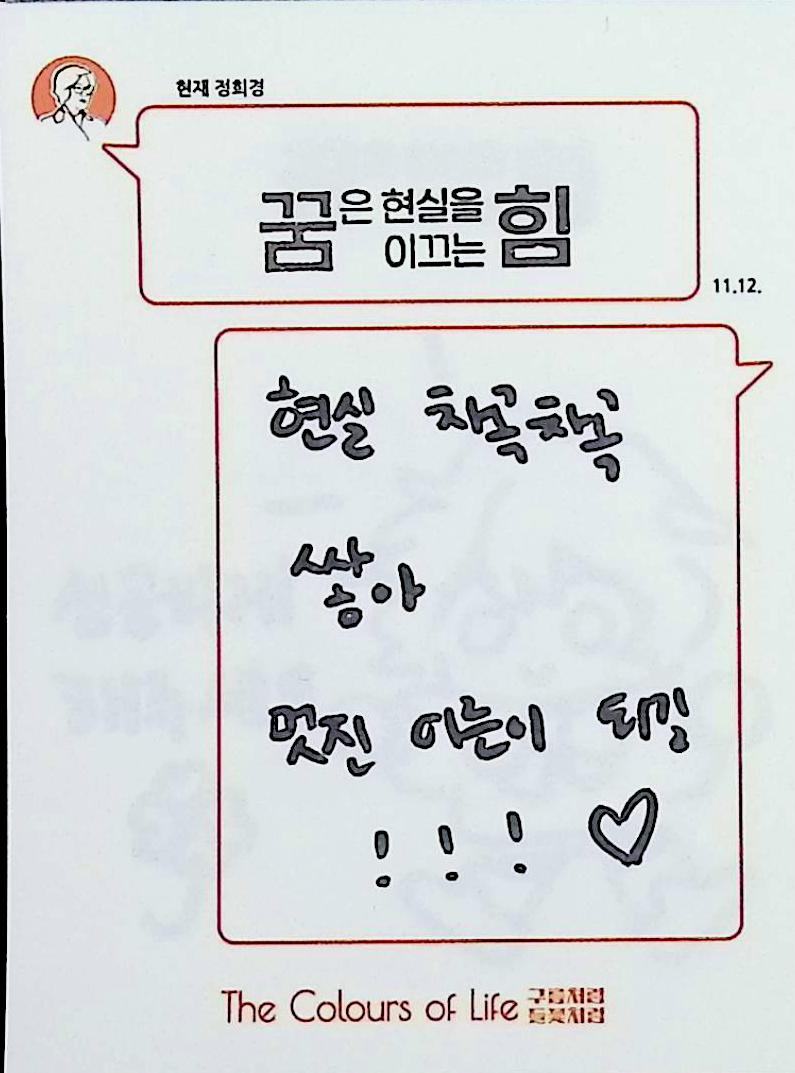 현재 정희경
꿈은 현실을
이끄는 힘
11.12.
현실 차곡차곡
쌓아
멋진 어른이 되길
! ! ! ♡
The Colours of Life 구름처럼
들꽃처럼